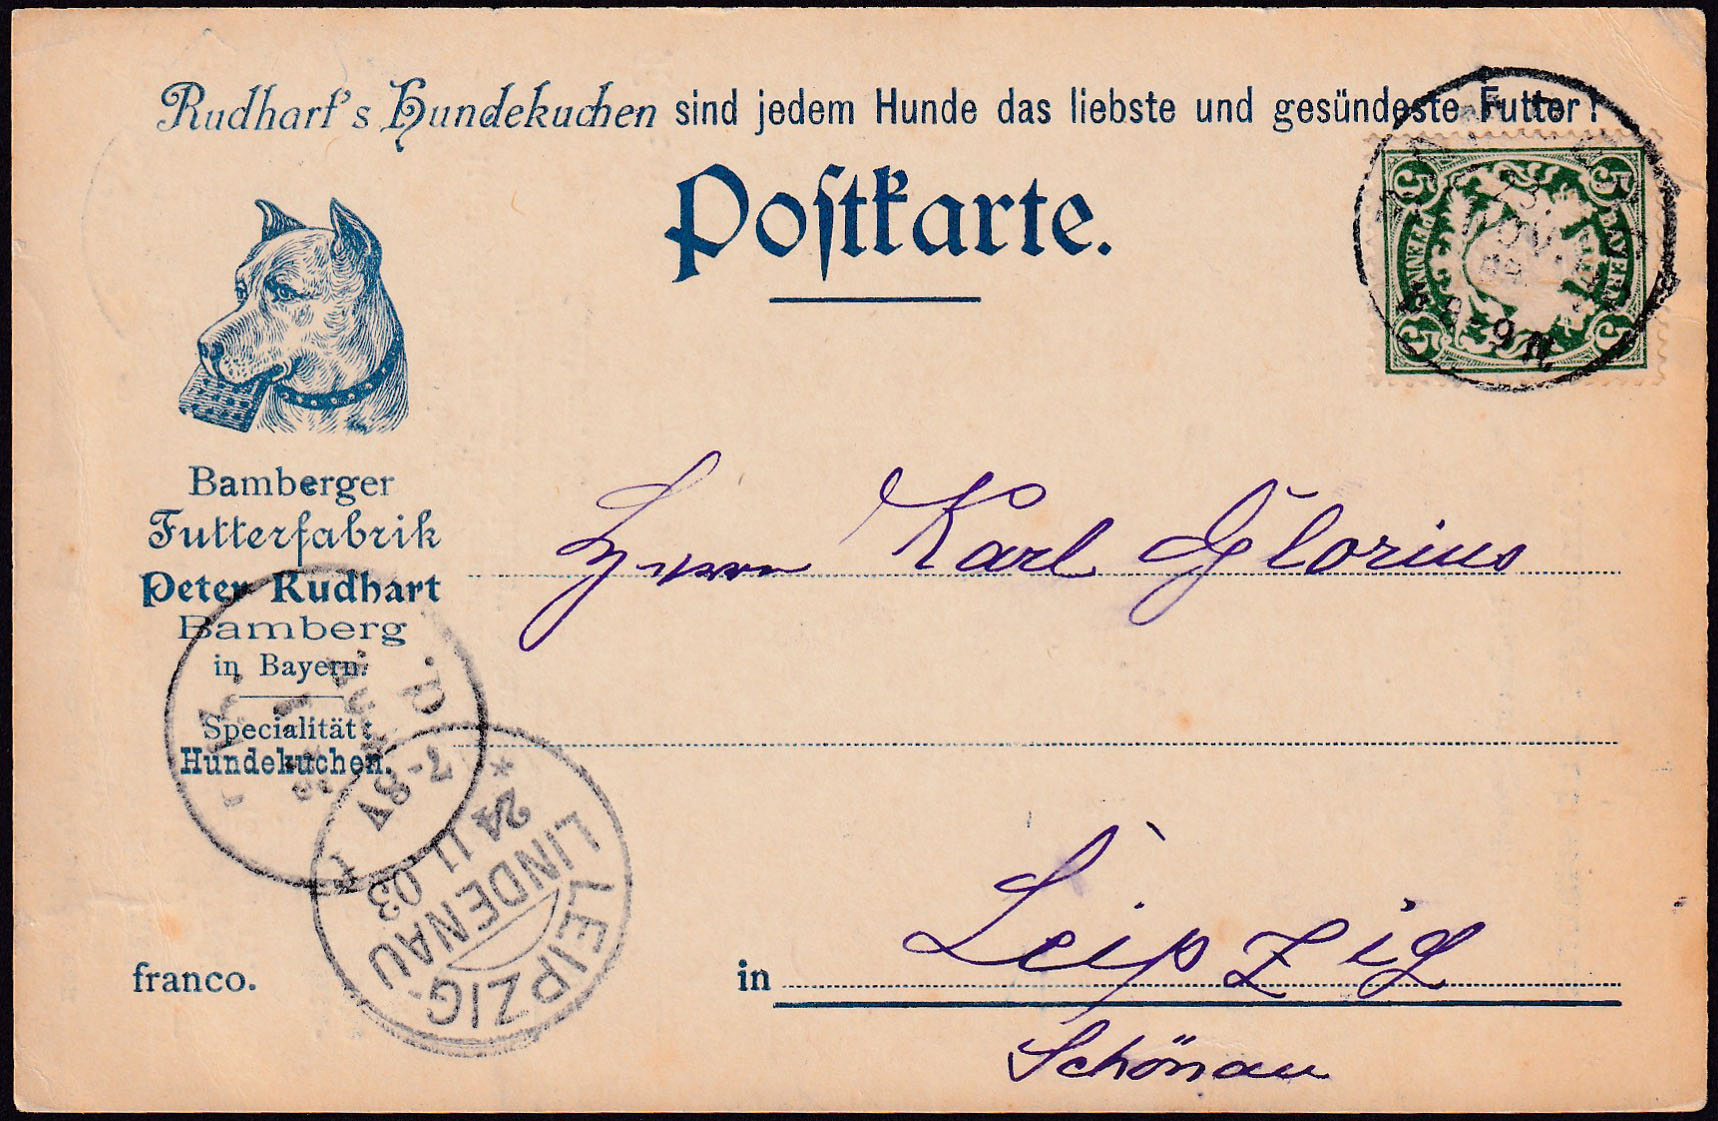 Rudhart's Hundekuchen sind jedem Hunde das liebste und gesündeste Futter!
Postkarte.
5 5
BAYERN
5 5
8-9 N.
Bamberger
Futterfabrik
Peter Rudhart
Bamberg
in Bayern.
Specialität:
Hundekuchen.
Herrn Karl Glorius
7-8V
* LEIPZIG-
LINDENAU
24 11 03
franco.
in Leipzig
Schönau